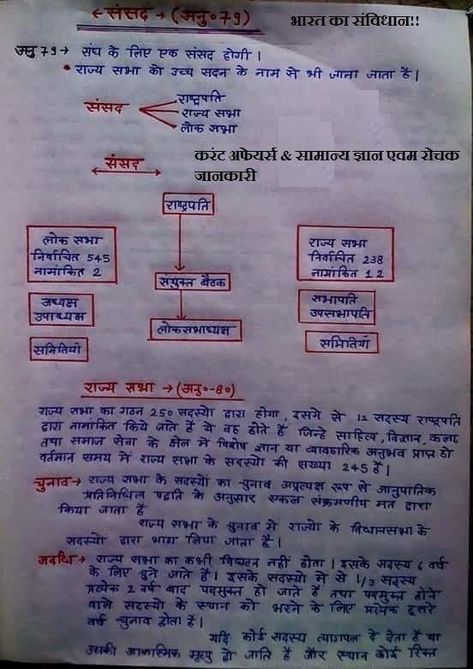 ← संसद → (अनु॰ 79)
भारत का संविधान!!
अनु 79 → संघ के लिए एक संसद होगी।
• राज्य सभा को उच्च सदन के नाम से भी जाना जाता है।
संसद
राष्ट्रपति
राज्य सभा
लोक सभा
संसद
करंट अफेयर्स & सामान्य ज्ञान एवम रोचक
जानकारी
राष्ट्रपति
लोक सभा
निर्वाचित 545
नामांकित 2
राज्य सभा
निर्वाचित 238
नामांकित 12
संयुक्त बैठक
अध्यक्ष
उपाध्यक्ष
सभापति
उपसभापति
लोकसभाध्यक्ष
समितियाँ
समितियाँ
राज्य सभा → (अनु॰-80)
राज्य सभा का गठन 250 सदस्यो द्वारा होगा, इसमे से 12 सदस्य राष्ट्रपति
द्वारा नामांकित किये जाते है ये वह होते है जिन्हे साहित्य, विज्ञान, कला
तथा समाज सेवा के क्षेत्र मे विशेष ज्ञान या व्यावहारिक अनुभव प्राप्त हो
वर्तमान समय मे राज्य सभा के सदस्यो की संख्या 245 है।
चुनाव → राज्य सभा के सदस्यों का चुनाव अप्रत्यक्ष रूप से आनुपातिक
प्रतिनिधित्व पद्वति के अनुसार एकल संक्रमणीय मत द्वारा
किया जाता है
राज्य सभा के चुनाव मे राज्यो के विधानसभा के
सदस्यो द्वारा भाग लिया जाता है।
अवधि → राज्य सभा का कभी विघटन नहीं होता। इसके सदस्य 6 वर्ष
के लिए चुने जाते है। इसके सदस्यो मे से 1/3 सदस्य
प्रत्येक 2 वर्ष बाद पदमुक्त हो जाते है तथा पदमुक्त होने
वाले सदस्यो के स्थान को भरने के लिए प्रत्येक दूसरे
वर्ष चुनाव होता है।
यदि कोई सदस्य त्यागपत्र दे देता है या
उसकी आकास्मिक मृत्यु हो जाती है और स्थान कोई रिक्त